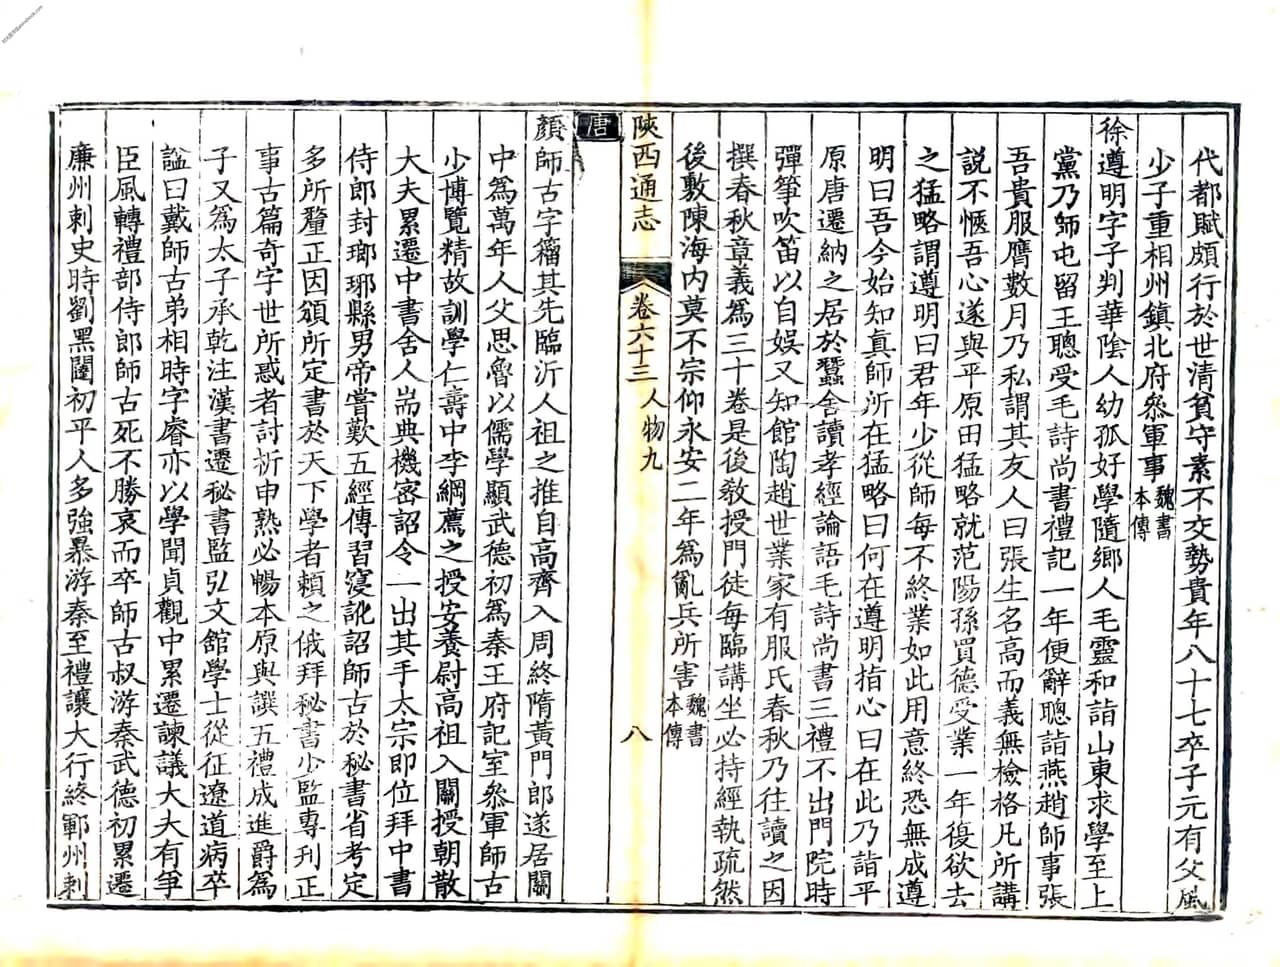 代都賦頗行於世清貧守素不交勢貴年八十七卒子元有父風
少子重相州鎮北府叅軍事魏書本傳
徐遵明字子判華隂人幼孤好學隨鄉人毛靈和詣山東求學至上
黨乃師屯留王聰受毛詩尚書禮記一年便辭聰詣燕趙師事張
吾貴服膺數月乃私謂其友人曰張生名高而義無檢格凡所講
說不愜吾心遂與平原田猛略就范陽孫買德受業一年復欲去
之猛略謂遵明曰君年少從師每不終業如此用意終恐無成遵
明曰吾今始知真師所在猛略曰何在遵明指心曰在此乃詣平
原唐遷納之居於蠶舍讀孝經論語毛詩尚書三禮不出門院時
彈箏吹笛以自娛又知館陶趙世業家有服氏春秋乃往讀之因
撰春秋章義為三十卷是後敎授門徒每臨講坐必持經執疏然
後敷陳海内莫不宗仰永安二年為亂兵所害魏書本傳
陝西通志 卷六十三人物九 八
唐
顏師古字籀其先臨沂人祖之推自高齊入周終隋黃門郎遂居關
中為萬年人父思魯以儒學顯武德初為秦王府記室叅軍師古
少博覽精故訓學仁壽中李綱薦之授安養尉高祖入關授朝散
大夫累遷中書舍人耑典機密詔令一出其手太宗即位拜中書
侍郎封瑯琊縣男帝嘗歎五經傳習寖訛詔師古於秘書省考定
多所釐正因頒所定書於天下學者頼之俄拜秘書少監專刋正
事古篇奇字世所惑者討析申熟必暢本原與譔五禮成進爵為
子又為太子承乾注漢書遷秘書監弘文館學士從征遼道病卒
諡曰戴師古弟相時字睿亦以學聞貞觀中累遷諫議大夫有爭
臣風轉禮部侍郎師古死不勝哀而卒師古叔游秦武德初累遷
廉州刺史時劉黑闥初平人多強暴游秦至禮讓大行終鄆州刺